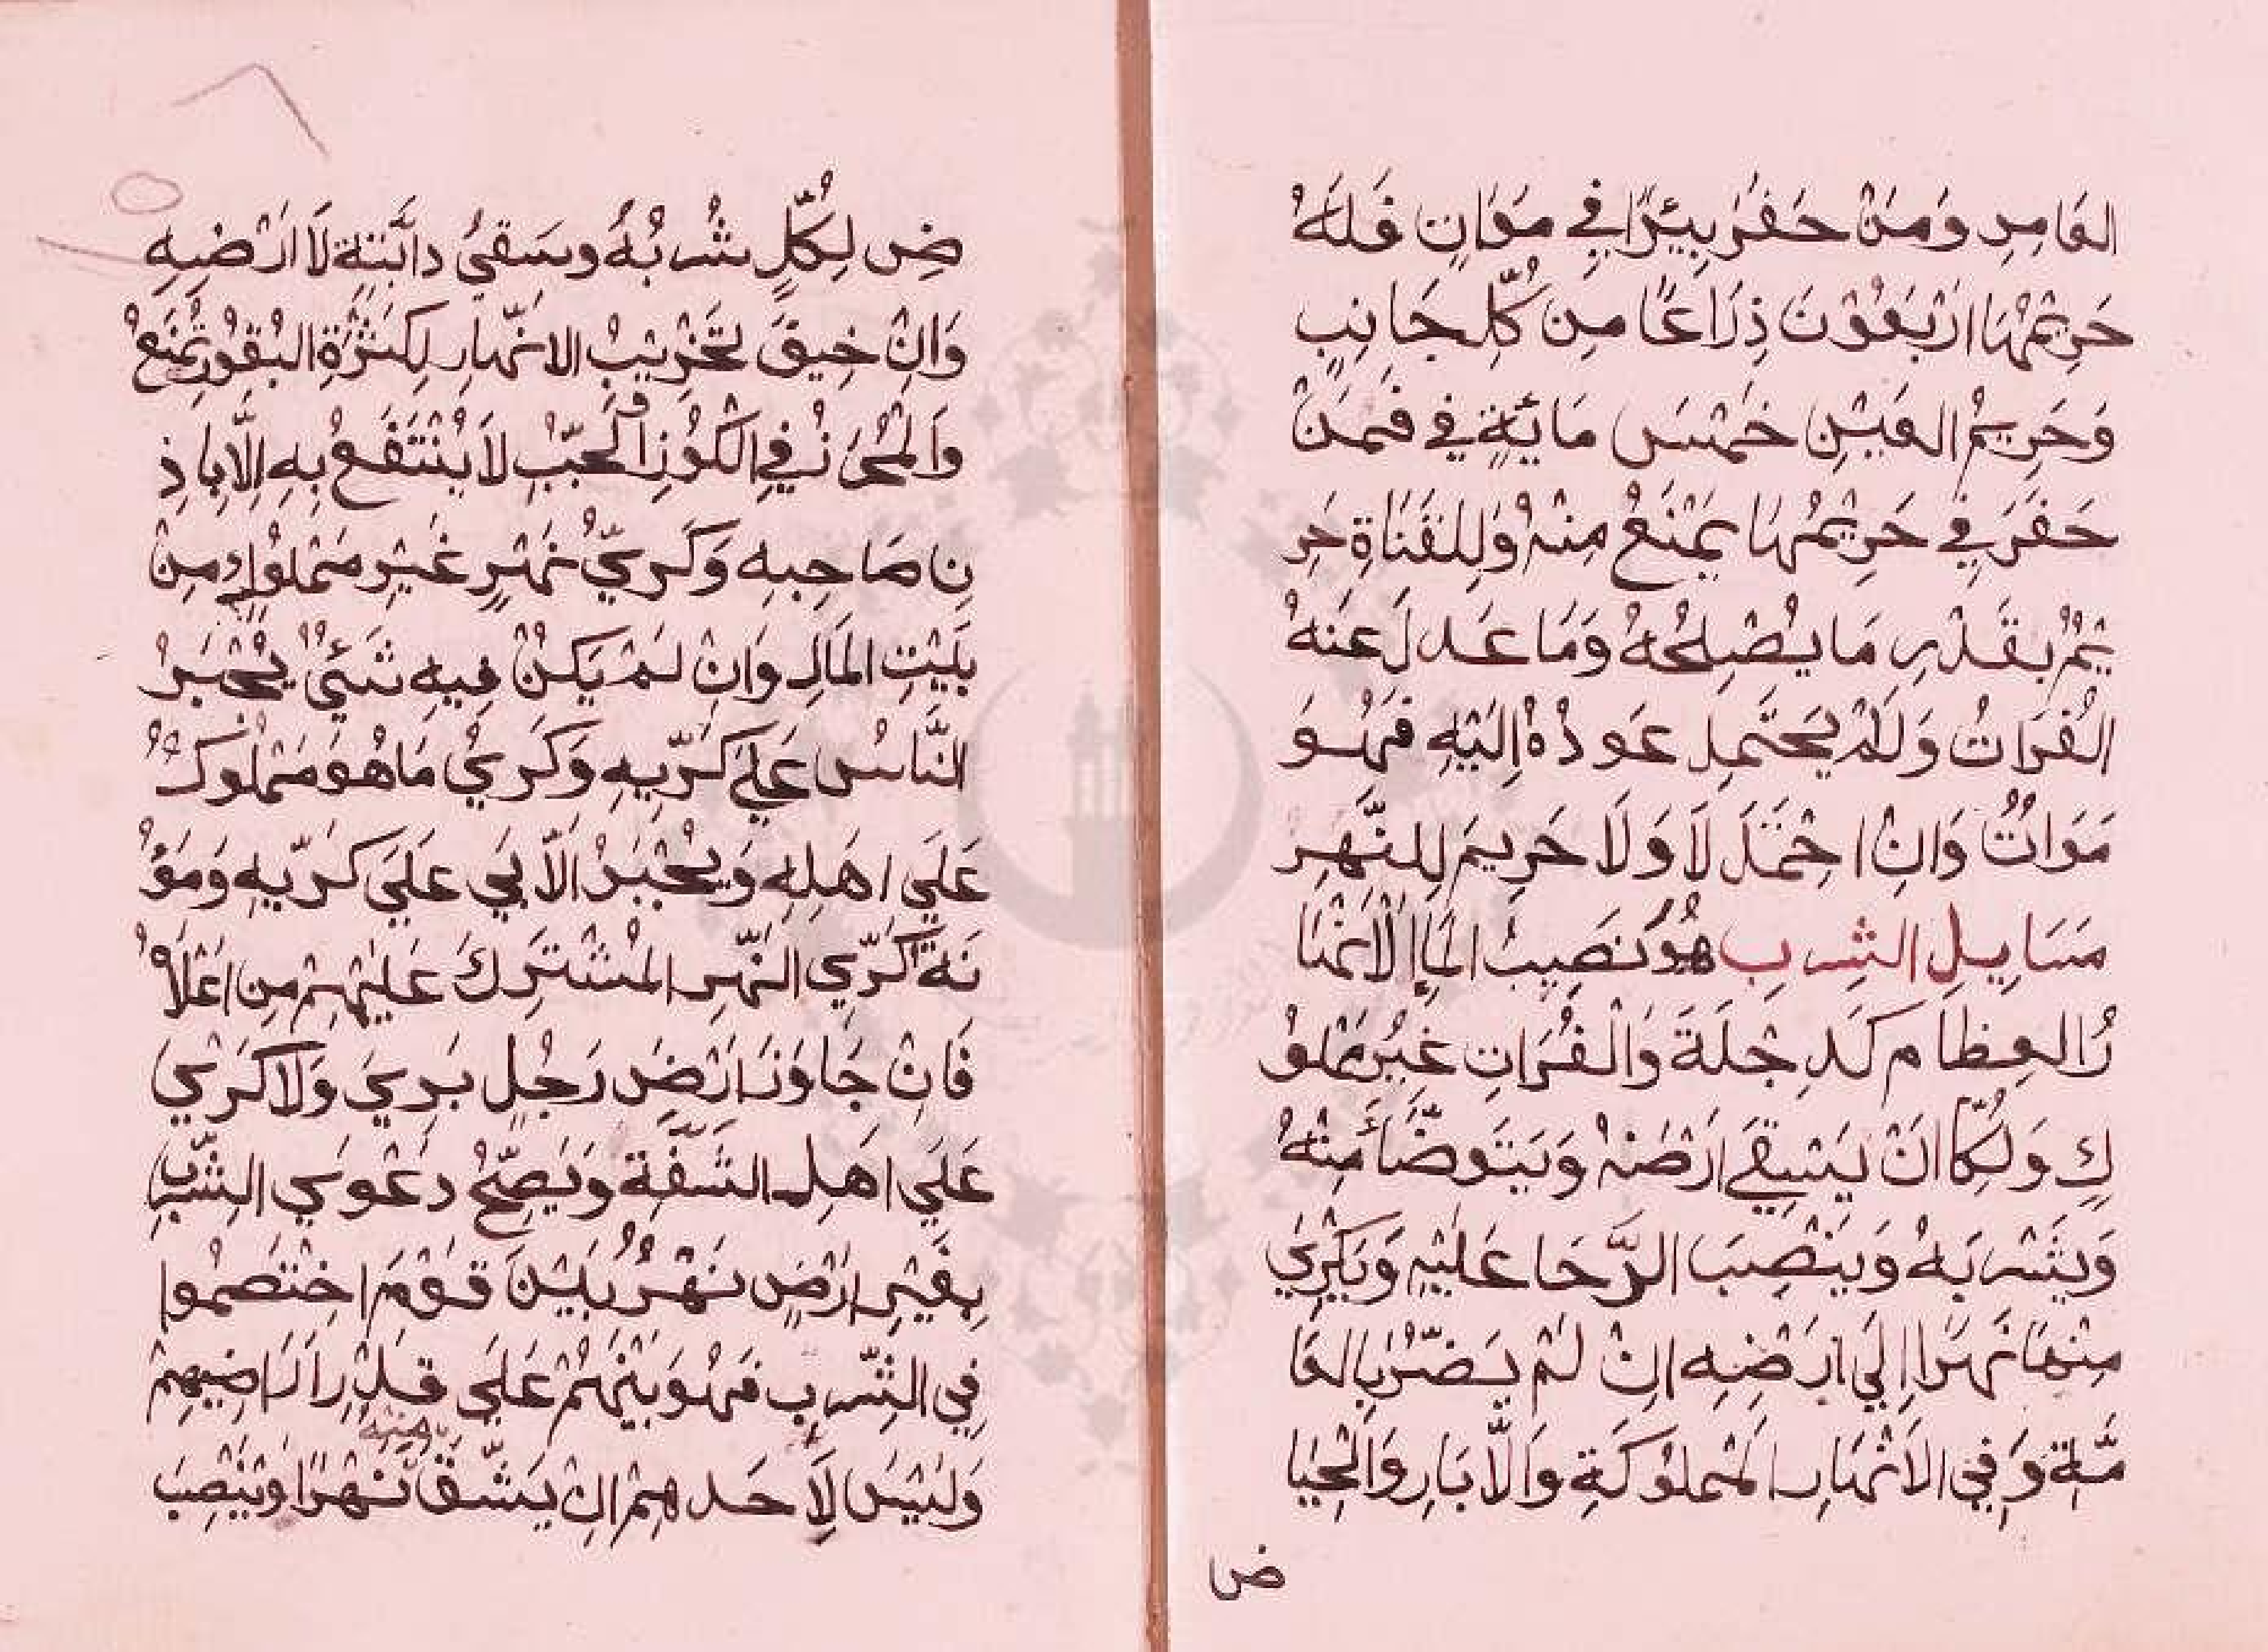 العَامِرِ وَمَنْ حَفَرَ بِيْرًا فِي مَوَاتٍ فَلَهُ
حَرِيمُهَا اَرْبَعُوْنَ ذِرَاعًا مِن كُلِّ جَانِبٍ
وَحَرِيمُ العَيْنِ خَمْسَ مَايَةٍ فِي فَمَنْ
حَفَرَ فِي حَرِيْمُهَا يَمْنَعُ مِنْهُ وَلِلْقَنَاةِ حَرِ
يْمٌ بِقَدْرِ مَا يُصْلِحُهُ وَمَا عَدلَ عَنهُ
الفُرَاتُ وَلَمْ يَحْتَمِل عَودُهُ اِلَيْهِ فَهُوَ
مَوَاتٌ وَاِنْ احْتَمَلَ لَا وَلَا حَرِيمَ لِلنَّهِرِ
مَسَايِلِ الشِربِ هُوَ نَصِيبُ المَاءِ الْاَنْهَا
رُ العِظَام كَدِجْلَةَ وَالْفُرَاتِ غَيْرُ مَمْلُو
كٍ وَلِكُلٍّ اَنْ يَسْقِيَ اَرْضَهُ وَيَتَوضَّأَ مِنْهُ
وَيَشْرَبَهُ وَيَنْصِبَ الرَّحَا عَلَيْهِ وَيَكْرِيَ
مِنْهَا نَهَرًا اِلَي اَرْضِهِ اِنْ لَمْ يَضُرّ بِالعَا
مَّةِ وَفِي الاَنْهَارِ المَمْلُوكَةِ وَالاَبَارِ وَالْحِيَا
ض
ضِ لِكُلٍّ شُرْبُهُ وسَقيُ دابَّتِهِ لَا اَرْضِهِ
وَاِنْ خِيفَ تَخْرِيْبُ الاَنْهَارِ لِكَثْرَةِ البُقُورِ تُمْنَعُ
وَالْمُحْرَزُ فِي الْكُوزِ وَ الْحُبِّ لَا يُنْتَفَعُ بِهِ اِلَّا بِاِذْ
نِ صَاحِبِهِ وَكَرِيُّ نَهْرٍ غَيْرِ مَمْلُوكٍ مِنْ
بَيْتِ المَالِ وَاِنْ لَمْ يَكُنْ فِيهِ شَيْءٌ يُجْبَرُ
النَّاسُ عَلَي كَرْيِهِ وَكَرِيُ مَا هُوَ مَمْلُوكٌ
عَلَي اهَلِهِ وَيُجْبَرُ الاٰبِي عَلَي كَرْيِهِ وَمَوُ
نَةُ كَرِي النَّهرِ المُشْتَرَكَ عَلَيْهِمْ مِن اَعْلَاهُ
فَاِنْ جَاوَزَ اَرْضَ رَجُلٍ بَرِيَ وَلَا كَرْيَ
عَلَي اهَلِ الشَّفَةِ وَيَصِحُّ دَعْوَي الشِّرْبِ
بِغَيْرِ اَرْضٍ نَهْرٌ بَيْنَ قَوْمَ اخْتَصَمُوا
فِي الشِّربِ فَهُوَ بَيْنَهُمْ عَلَي قَدْرِ اَرَاضِيهِمْ
وَلَيْسَ لِاَحَدِهِمْ اِنْ يَشُقَّ مِنْهُ نَهْرًا وَيَنْصِبَ